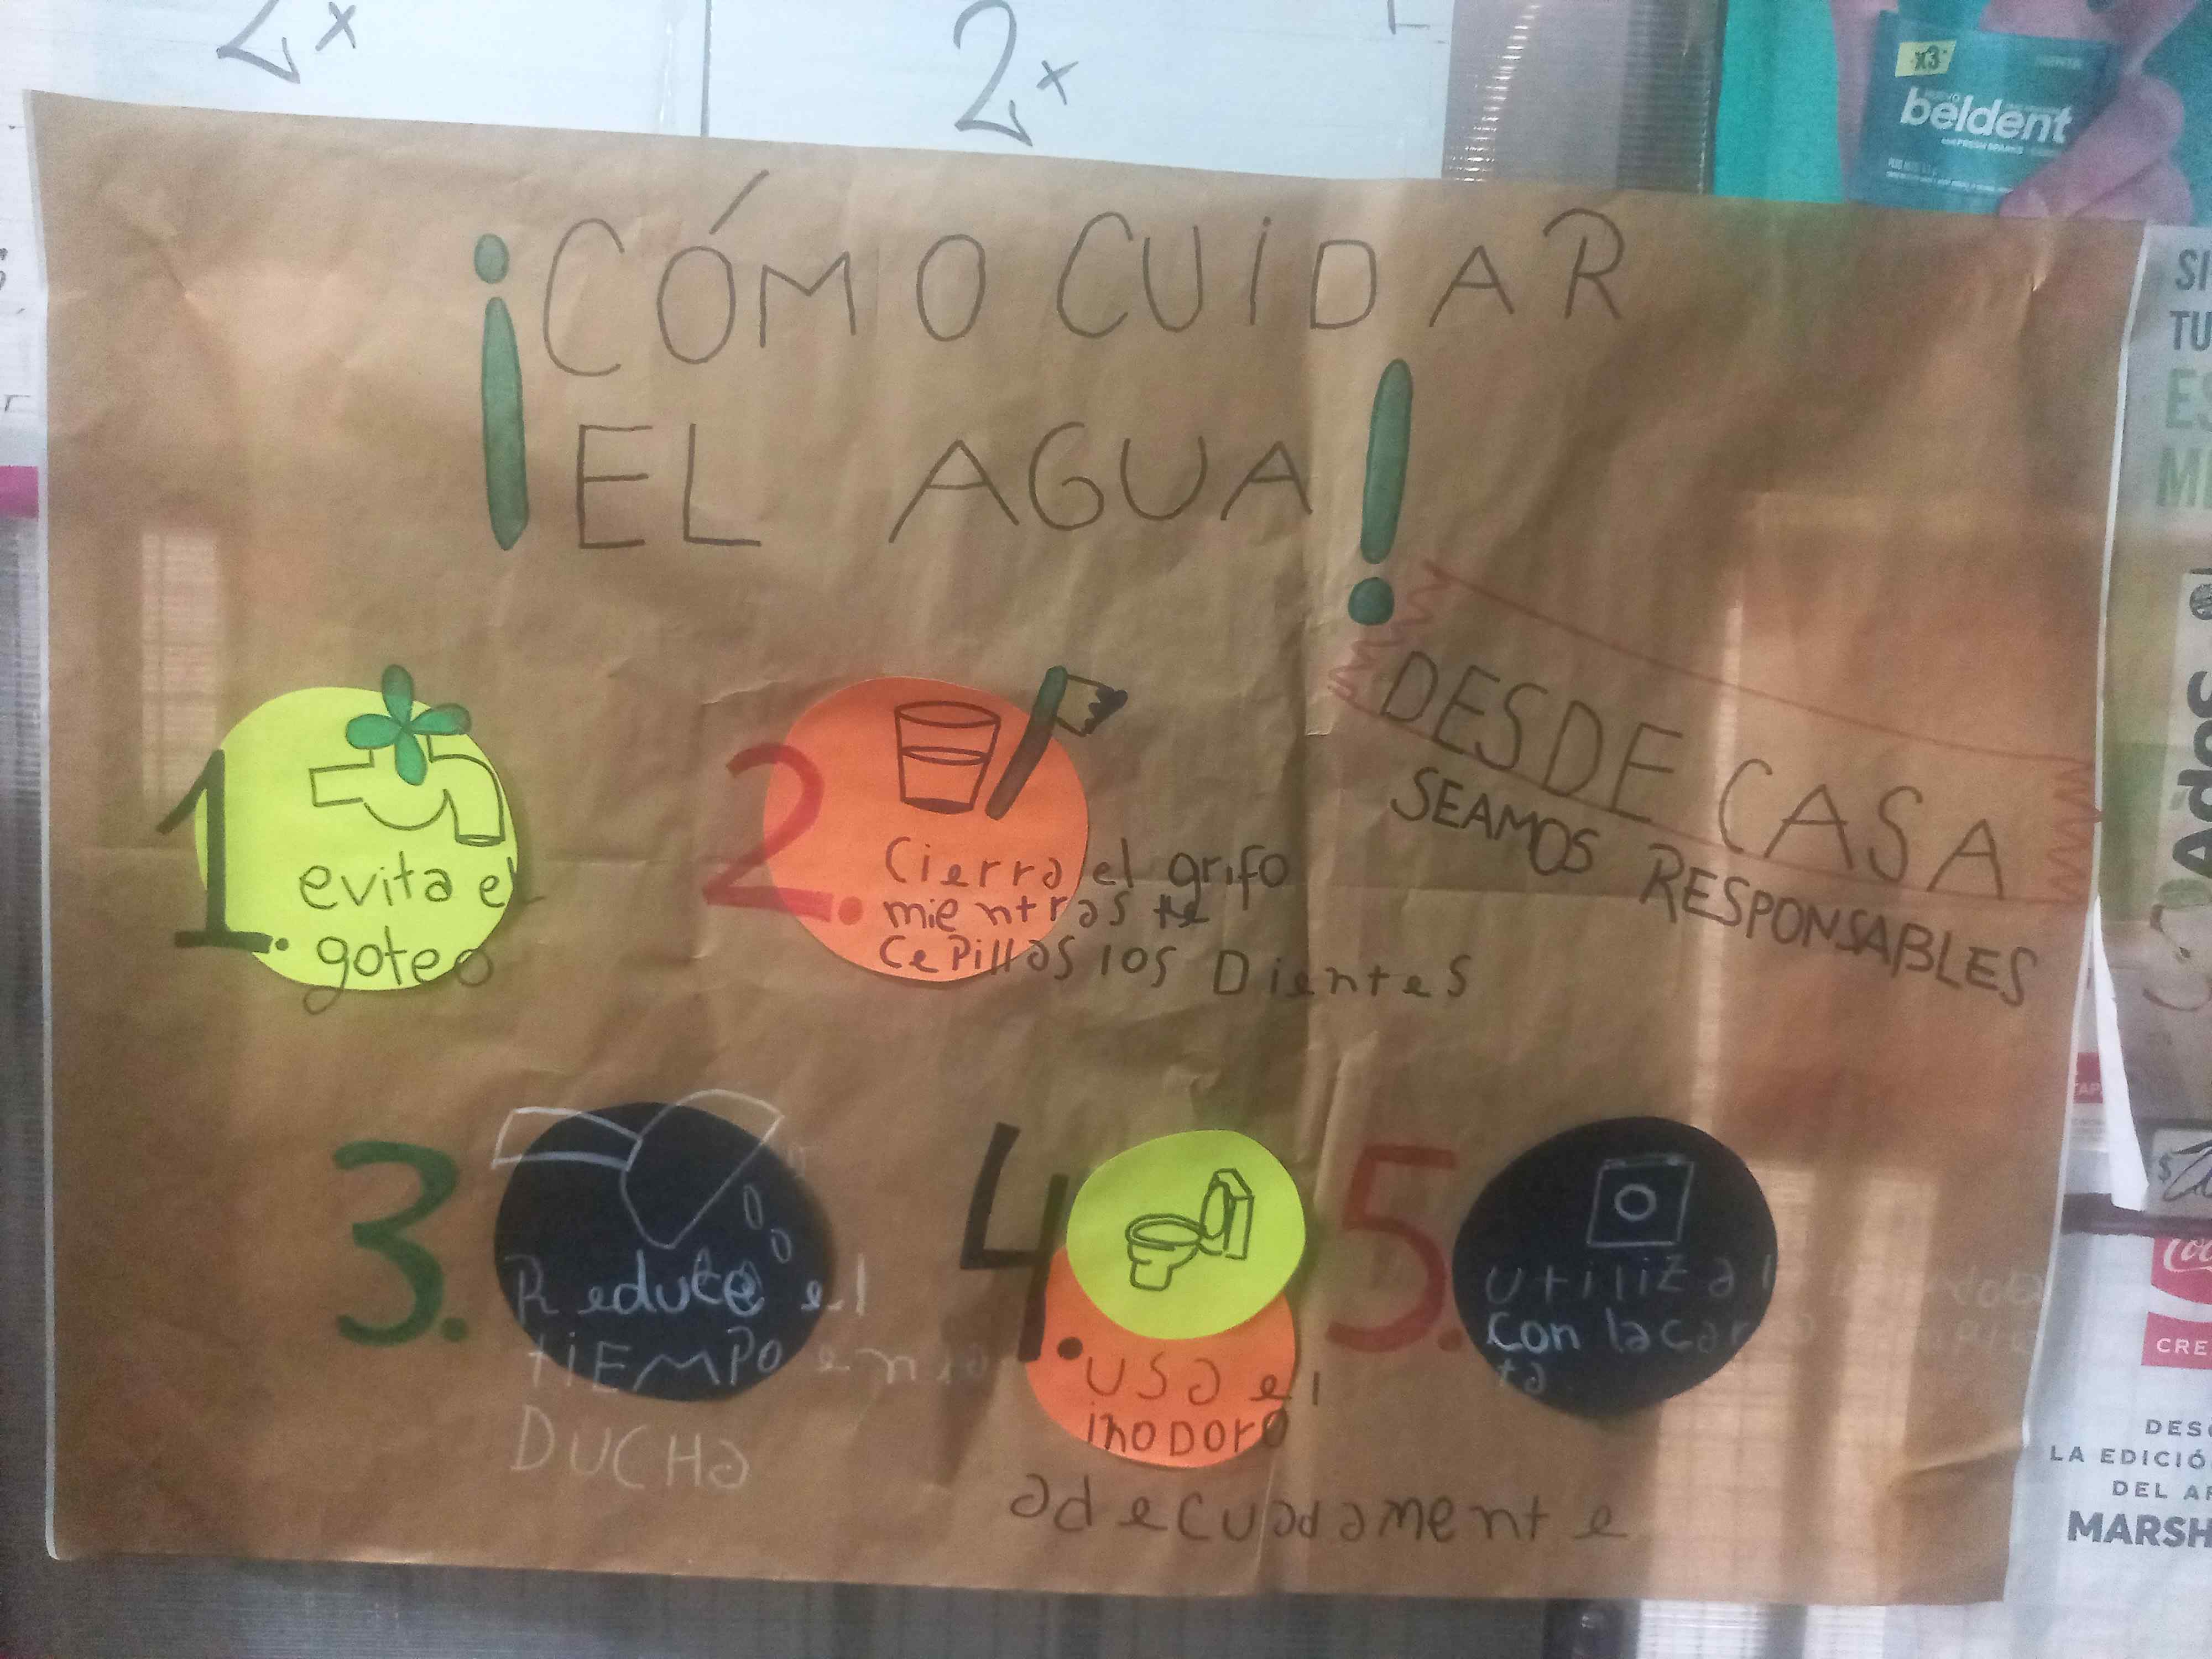 2x
2x
x3
beldent
¡CÓMO CUIDAR
EL AGUA!
DESDE CASA
SEAMOS RESPONSABLES
1. evita el
goteo
2. Cierra el grifo
mientras te
cepillas los Dientes
3. Reduce el
tiEMPO en la
DUCHa
4. Usa el
inodoro
adecuadamente
5. Utiliza
con la
ta
SI
TU
CRE
DES
LA EDICIÓ
DEL
MARSH